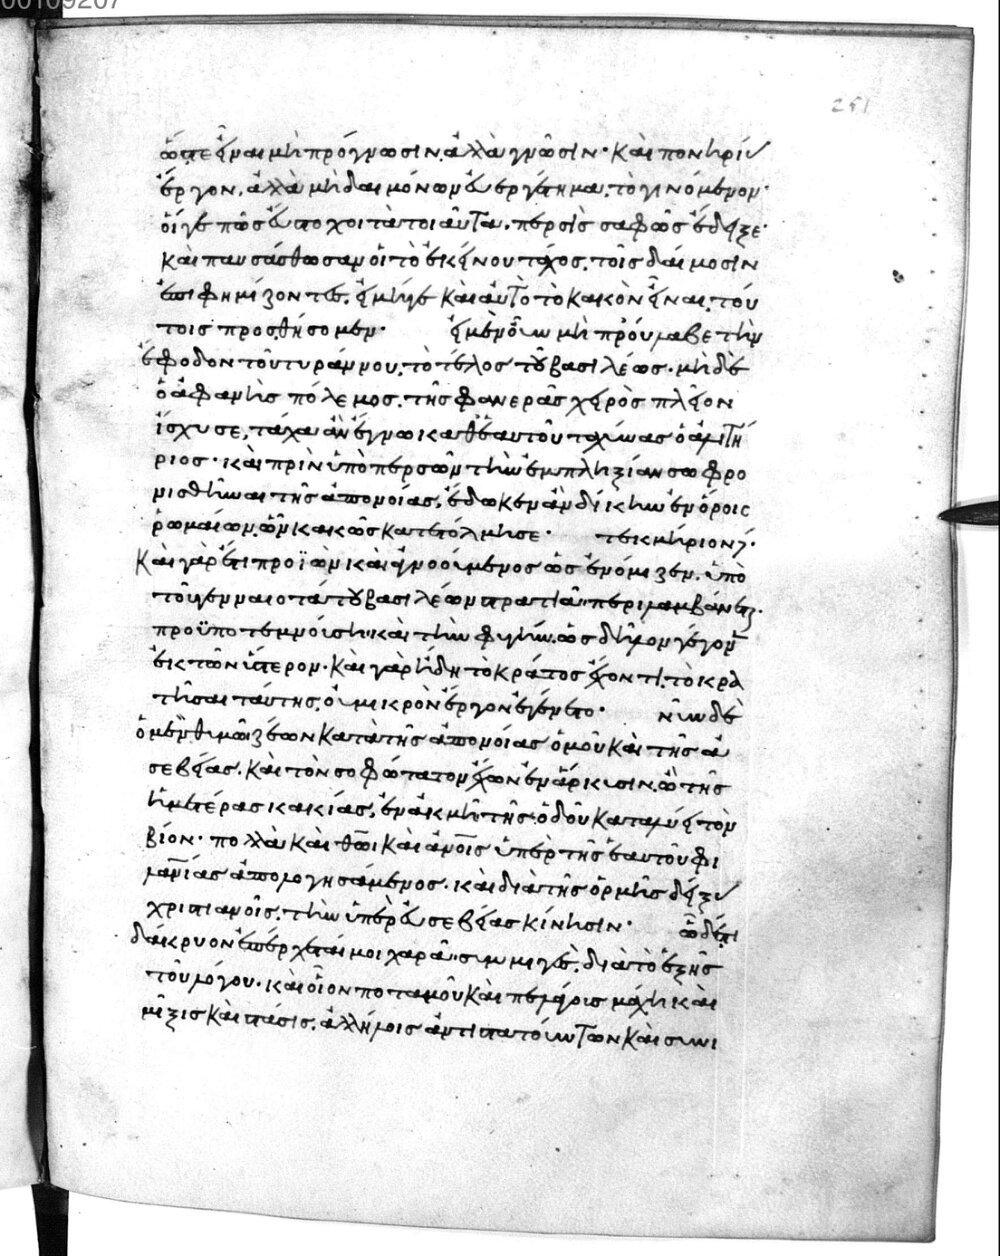 00109207
251
ὥστε εἶναι μὴ πρόγνωσιν, ἀλλὰ γνῶσιν· καὶ πονηρίας
ἔργον, ἀλλὰ μὴ δαιμόνων εὐεργέτημα, τὸ γινόμενον·
οἵγε πῶς εὐστοχοι τὰ τοιαῦτα, πέρσὶς σαφῶς ἔδειξε·
καὶ παυσάσθωσαν οἱ τὸ ἐκείνου τάχος, τοῖς δαίμοσιν
ἐπιφημίζοντες, εἰ μήγε καὶ αὐτὸ τὸ κακὸν εἶναι, τού
τοις προσθήσομεν· εἰ μὲν οὖν μὴ προὔλαβε τὴν
ἔφοδον τοῦ τυράννου, τὸ τέλος τοῦ βασιλέως· μηδὲ
ὁ ἀφανὴς πόλεμος, τῆς φανερᾶς χειρὸς πλεῖον
ἴσχυσε, τάχα ἂν ἔγνω καθ' ἑαυτοῦ ταχύνας ὁ ἀλιτή
ριος· καὶ πρὶν ὑπὸ περσῶν τὴν ἐμπληξίαν σωφρο
νισθῆναι τῆς ἀπονοίας, ἔδωκεν ἂν δίκην ἐν ὅροις
ῥωμαίων, ὧν κακῶς κατετόλμησε· τεκμήριον
Καὶ γὰρ ἔτι προϊὼν καὶ ἀγνοούμενος ὡς ἐνόμιζεν, ὑπὸ
τοῦ γενναιοτάτου βασιλέων στρατιᾷ περιλαμβάνεται
προϋποτεμνούσῃ καὶ τὴν φυγὴν, ὡς δῆλον γέγονεν
ἐκ τῶν ὕστερον· Καὶ γὰρ ἤδη τὸ κράτος ἔχοντι, τὸ κρα
τῆσαι ταύτης, οὐ μικρὸν ἔργον ἐγένετο· νῦν δὲ
ὁ μὲν θυμῶι ζέων κατὰ τῆς ἀπονοίας ὁμοῦ καὶ τῆς ἀ
σεβείας, καὶ τὸν σοφώτατον ἔχων ἐν ἄρκυσιν, ὢ τῆς
ἡμετέρας κακίας, ἐν ἀκμῇ τῆς ὁδοῦ καταλύει τὸν
βίον· πολλὰ καὶ θεῶι καὶ ἀνοῖς ὑπὲρ τῆς ἑαυτοῦ φι
λανίας ἀπολογησάμενος· καὶ διὰ τῆς ὁρμῆς δείξας
χριστιανοῖς, τὴν ὑπὲρ εὐσεβείας κίνησιν· ὧδέ τι
δάκρυον ἐπέρχεταί μοι χαρᾷ συμμιγὲς, διὰ τὸ ἑξῆς
τοῦ λόγου· καὶ οἷον ποταμοῦ καὶ πελάγους μάχη καὶ
μίξις καὶ στάσις, ἀλλήλοις ἀντιστατούντων καὶ συνι